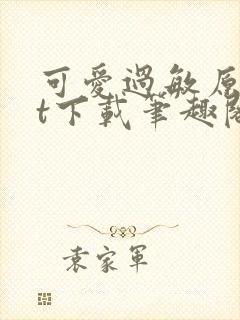 可愛過敏原
t下載筆趣閣
袁家軍